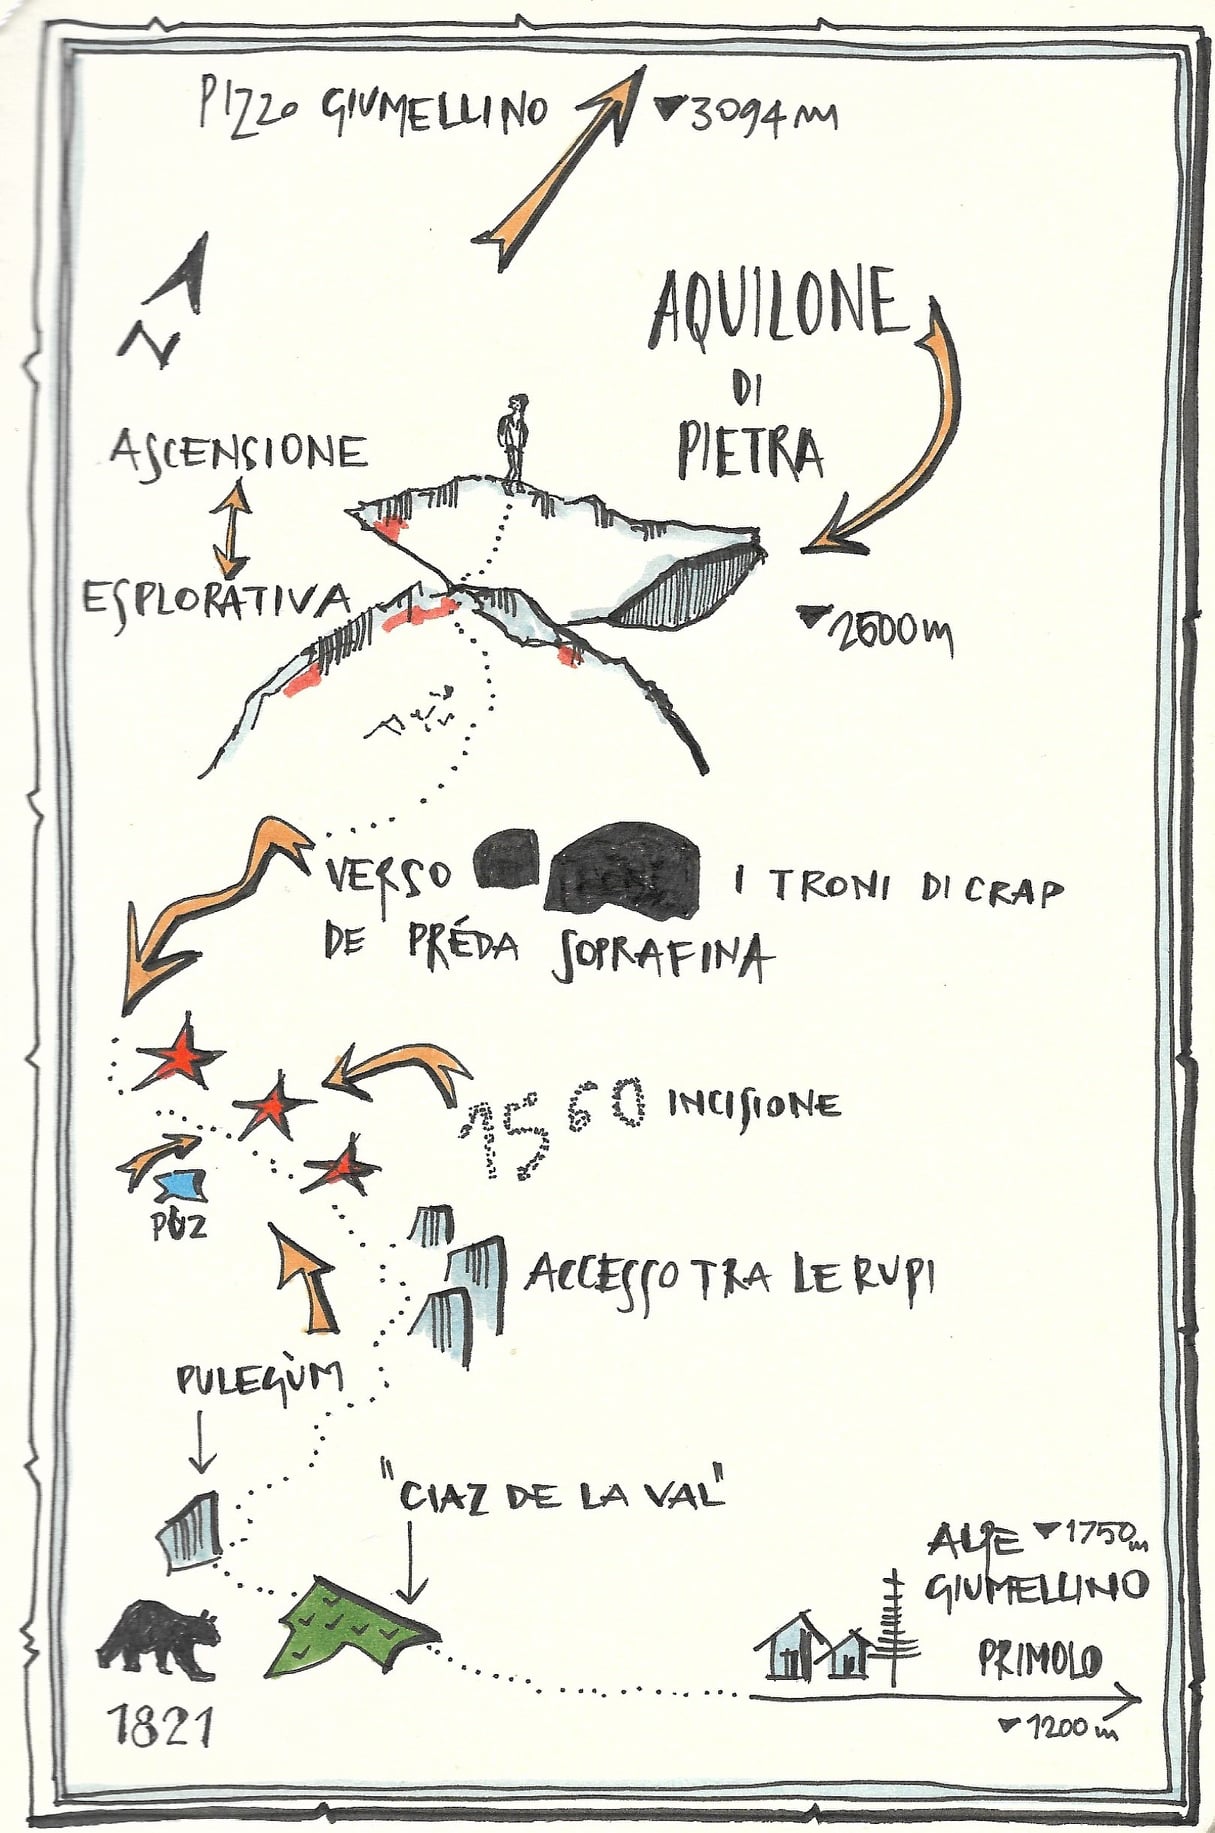 PIZZO GIUMELLINO ▼3094 m
N
AQUILONE
DI
PIETRA
ASCENSIONE
ESPLORATIVA
▼2500 m
VERSO I TRONI DI CRAP
DE PRÉDA SOPRAFINA
1560 INCISIONE
PÙZ
ACCESSO TRA LE RUPI
PULEGÙM
"CIAZ DE LA VAL"
ALPE ▼1750 m
GIUMELLINO
PRIMOLO
▼1200 m
1821